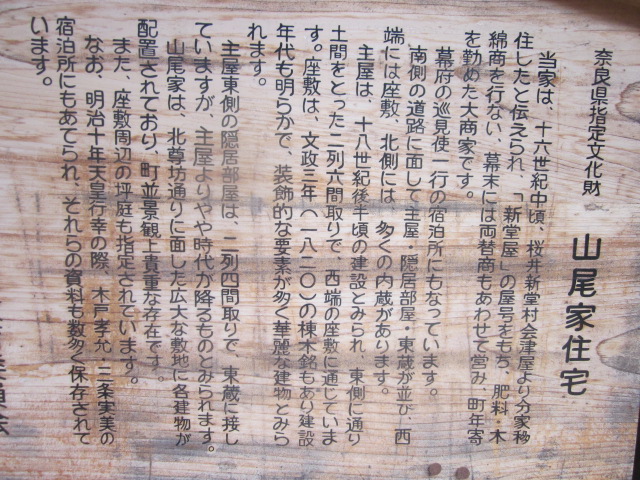 奈良県指定文化財
山尾家住宅
当家は、十六世紀中頃、桜井新堂村会津屋より分家移
住したと伝えられ、「新堂屋」の屋号をもち、肥料・木
綿商を行ない、幕末には両替商もあわせて営み、町年寄
を勤めた大商家です。
幕府の巡見使一行の宿泊所にもなっています。
南側の道路に面して主屋・隠居部屋・東蔵が並び、西
端には座敷、北側には、多くの内蔵があります。
主屋は、十八世紀後半頃の建設とみられ、東側に通り
土間をとった二列六間取りで、西端の座敷に通じていま
す。座敷は、文政三年（一八二〇）の棟木銘もあり建設
年代も明らかで、装飾的な要素が多く華麗な建物とみら
れます。
主屋東側の隠居部屋は、二列四間取りで、東蔵に接し
ていますが、主屋よりやや時代が降るものとみられます。
山尾家は、北尊坊通りに面した広大な敷地に各建物が
配置されており、町並景観上貴重な存在です。
また、座敷周辺の坪庭も指定されています。
なお、明治十年天皇行幸の際、木戸孝允・三条実美の
宿泊所にもあてられ、それらの資料も数多く保存されて
います。